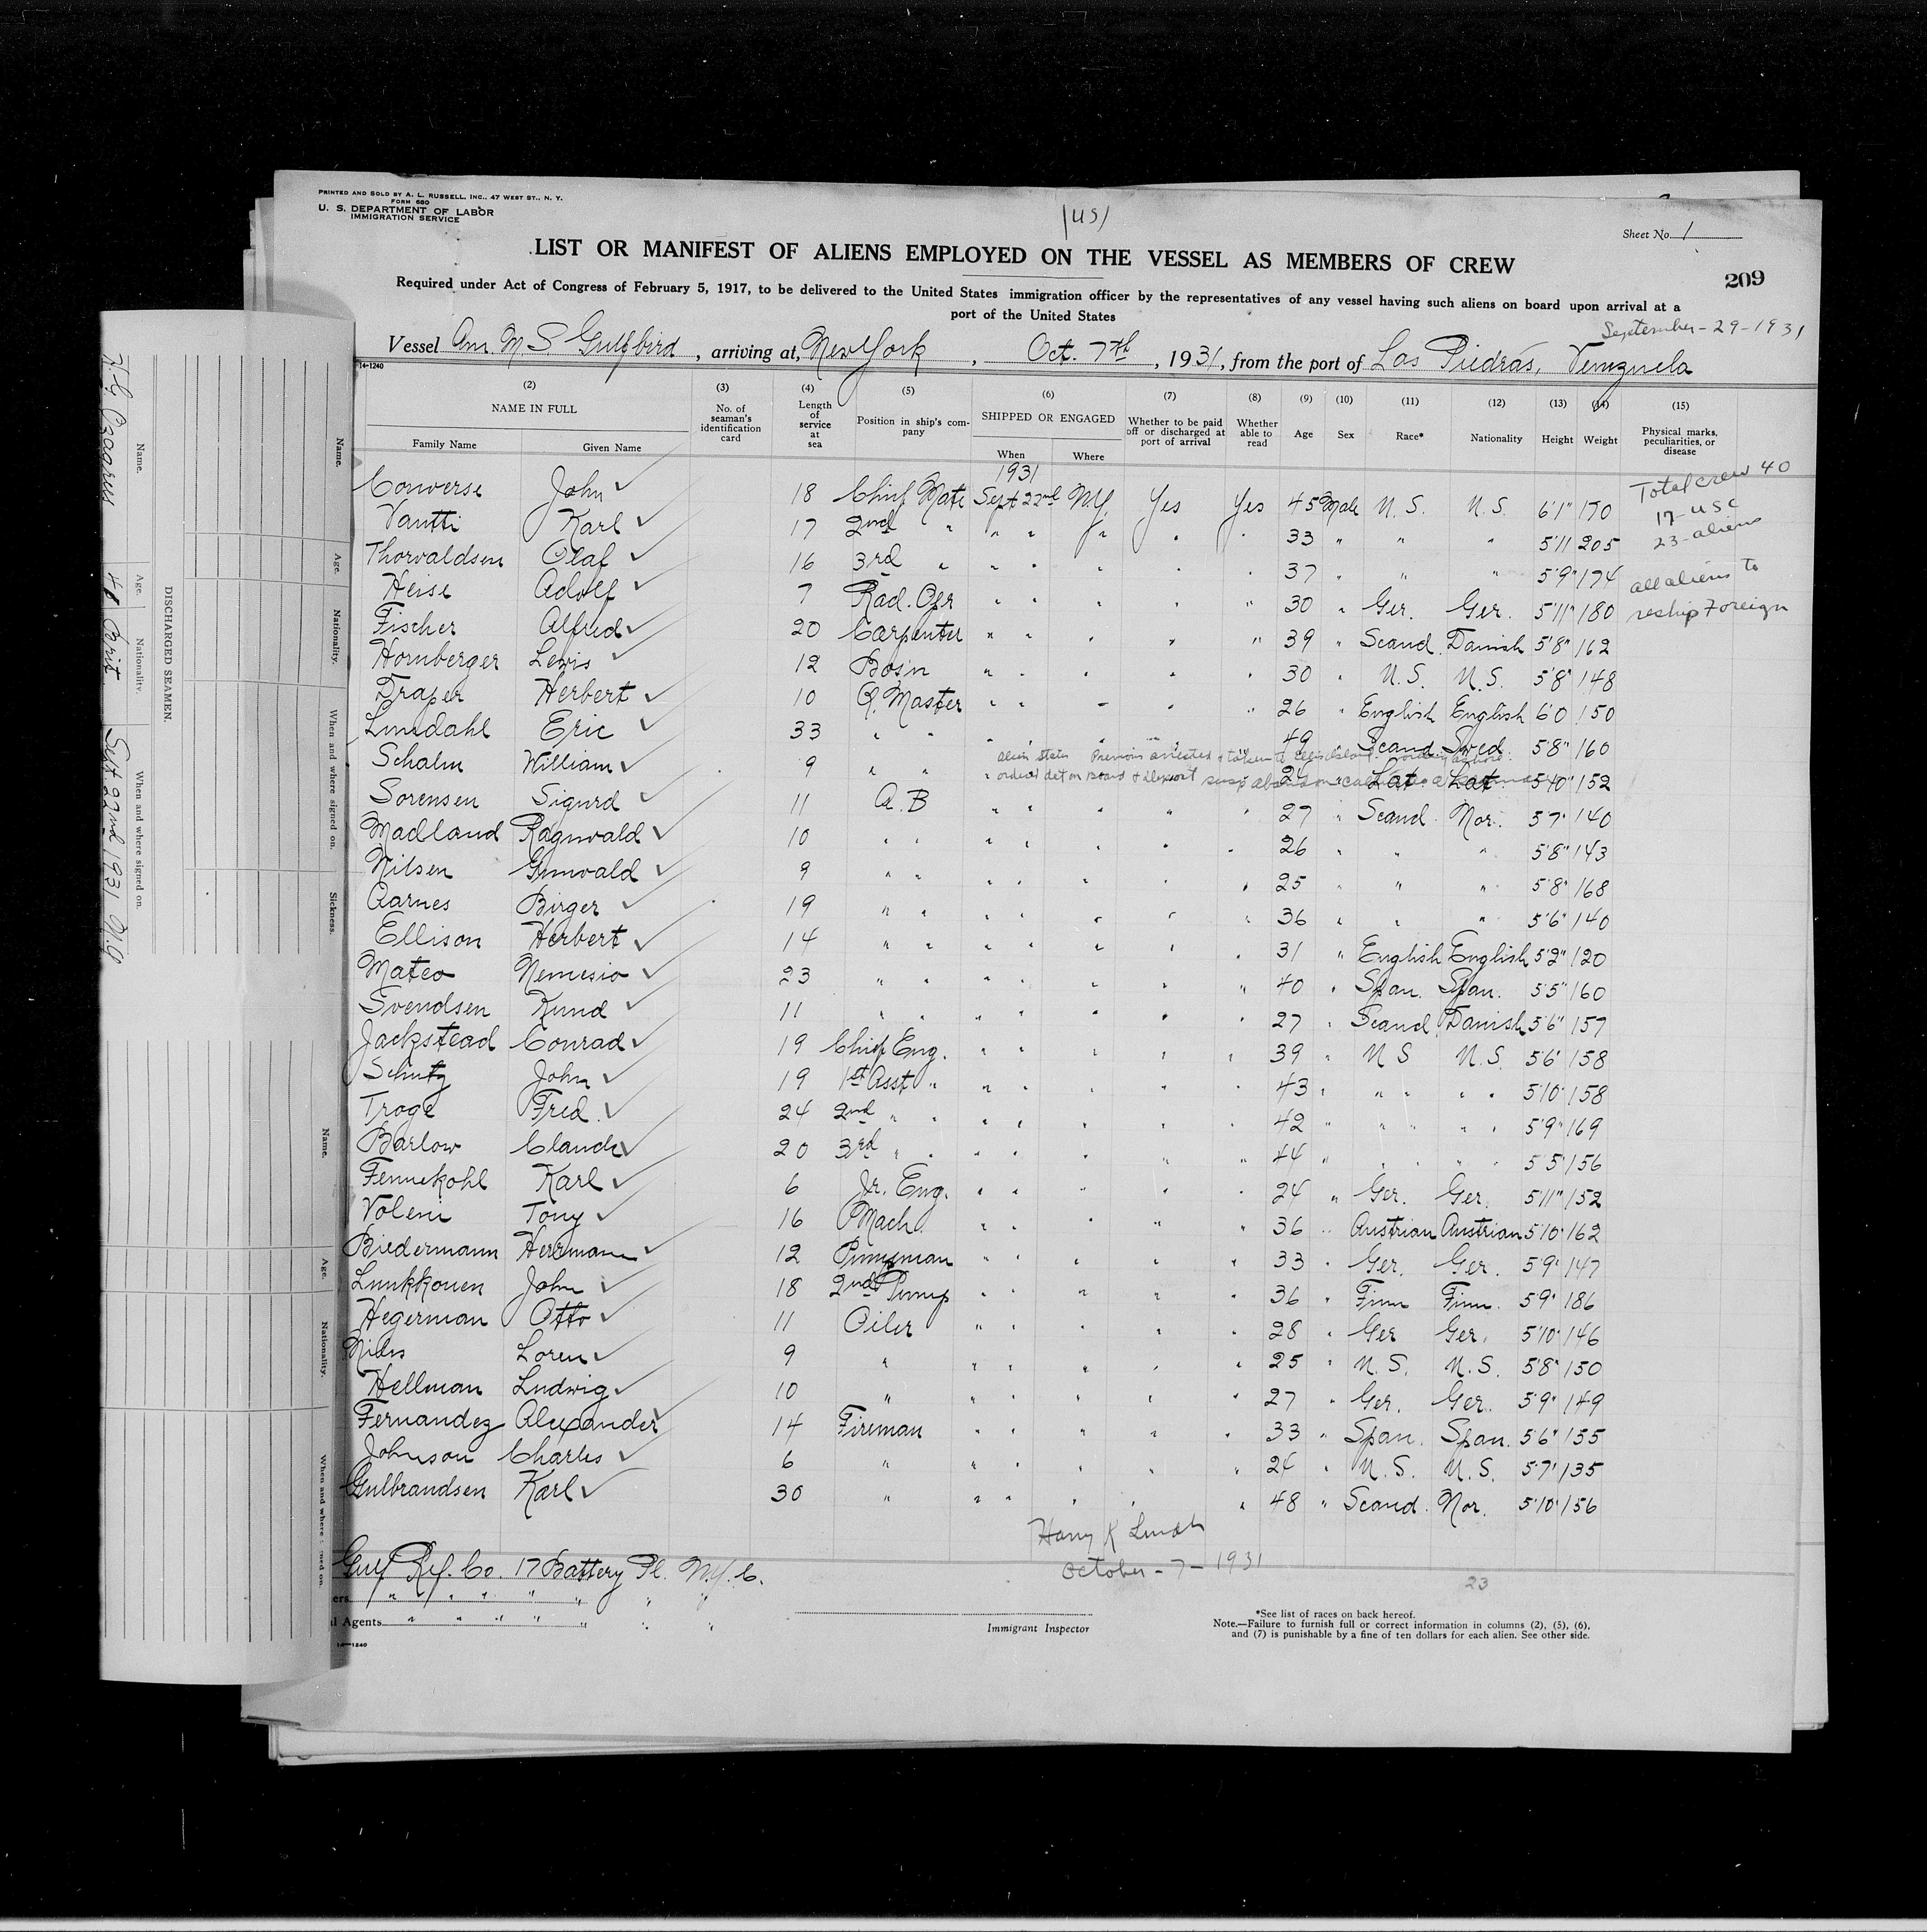 PRINTED AND SOLD BY A. L. RUSSELL, INC., 47 WEST ST., N. Y.
FORM 680
U. S. DEPARTMENT OF LABOR
IMMIGRATION SERVICE
(US)
Sheet No. 1
LIST OR MANIFEST OF ALIENS EMPLOYED ON THE VESSEL AS MEMBERS OF CREW
209
Required under Act of Congress of February 5, 1917, to be delivered to the United States immigration officer by the representatives of any vessel having such aliens on board upon arrival at a
port of the United States
September-29-1931
Vessel Am. M. S. Gulfbird, arriving at, New York, Oct. 7th, 1931, from the port of Las Piedras, Venezuela
14-1240
(2) (3) (4) (5) (6) (7) (8) (9) (10) (11) (12) (13) (14) (15)
NAME IN FULL No. of seaman's identification card Length of service at sea Position in ship's company SHIPPED OR ENGAGED Whether to be paid off or discharged at port of arrival Whether able to read Age Sex Race* Nationality Height Weight Physical marks, peculiarities, or disease
Family Name Given Name When Where
1931
Total crew 40
17- USC
23-aliens
all aliens to
reship Foreign
Converse John ✓ 18 Chief Mate Sept 22nd N.Y. Yes Yes 45 Male U.S. U.S. 6'1" 170
Vantti Karl ✓ 17 2nd " " " " " " 33 " " " 5'11 205
Thorvaldsen Olaf ✓ 16 3rd " " " " " 37 " " " 5'9" 174
Heise Adolf ✓ 7 Rad. Opr " " " " " 30 " Ger. Ger. 5'11" 180
Fischer Alfred ✓ 20 Carpenter " " " " " 39 " Scand. Danish 5'8" 162
Hornberger Lewis ✓ 12 Bos'n " " " " " 30 " U.S. U.S. 5'8" 148
Draper Herbert ✓ 10 Q. Master " " " " " 26 " English English 6'0 150
Lindahl Eric ✓ 33 " " " " " " " 49 " Scand. Swed. 5'8" 160
alien states Previous arrested & taken to Ellis Island
ordered det on board & deport
Schalm William ✓ 9 " " " 24 Lat. Lat. 5'10" 152
Sorensen Sigurd ✓ 11 A. B " " " " " 27 " Scand. Nor. 5'7" 140
Madland Ragnvald ✓ 10 " " " " " " " 26 " " " 5'8" 143
Nilsen Gunwald ✓ 9 " " " " " " " 25 " " " 5'8" 168
Aarnes Birger ✓ 19 " " " " " " " 36 " " " 5'6" 140
Ellison Herbert ✓ 14 " " " " " " " 31 " English English 5'2" 120
Mateo Nemesio ✓ 23 " " " " " " " 40 " Span. Span. 5'5" 160
Svendsen Knud ✓ 11 " " " " " " " 27 " Scand. Danish 5'6" 157
Jackstead Conrad ✓ 19 Chief Eng. " " " " " 39 " U S U.S. 5'6" 158
Schutz John ✓ 19 1st Asst " " " " " " 43 " " " 5'10" 158
Troge Fred. ✓ 24 2nd " " " " " " " 42 " " " 5'9" 169
Barlow Claude ✓ 20 3rd " " " " " " " 44 " " " 5'5" 156
Fennekohl Karl ✓ 6 Jr. Eng. " " " " " 24 " Ger. Ger. 5'11" 152
Voleni Tony ✓ 16 Mach. " " " " " 36 " Austrian Austrian 5'10" 162
Biedermann Herrmann ✓ 12 Pumpman " " " " " 33 " Ger. Ger. 5'9" 147
Lunkkonen John ✓ 18 2nd Pump " " " " " 36 " Finn Finn. 5'9" 186
Hegerman Otto ✓ 11 Oiler " " " " " 28 " Ger Ger. 5'10" 146
Loren ✓ 9 " " " " " " 25 " U.S. U.S. 5'8" 150
Hellman Ludwig ✓ 10 " " " " " " 27 " Ger. Ger. 5'9" 149
Fernandez Alexander ✓ 14 Fireman " " " " " 33 " Span. Span. 5'6" 155
Johnson Charles ✓ 6 " " " " " " 24 " U.S. U.S. 5'7" 135
Gulbrandsen Karl ✓ 30 " " " " " " 48 " Scand. Nor. 5'10" 156
Harry K
October-7-1931
Gulf Ref. Co. 17 Battery Pl. N.Y.C.
23
ers " " " " " " "
l Agents " " " " " " "
14-1240
Immigrant Inspector
*See list of races on back hereof.
Note.—Failure to furnish full or correct information in columns (2), (5), (6),
and (7) is punishable by a fine of ten dollars for each alien. See other side.
DISCHARGED SEAMEN.
Name. Age. Nationality. When and where signed on.
Brit. Sept 22nd 1931 N.Y
Name. Age. Nationality. When and where signed on. Sickness.
Name. Age. Nationality. When and where signed on.